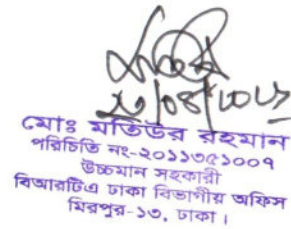 ২৩/০৪/২০১৭
মোঃ মতিউর রহমান
পরিচিতি নং-২০১১৩৫১০০৭
উচ্চমান সহকারী
বিআরটিএ ঢাকা বিভাগীয় অফিস
মিরপুর-১৩, ঢাকা।